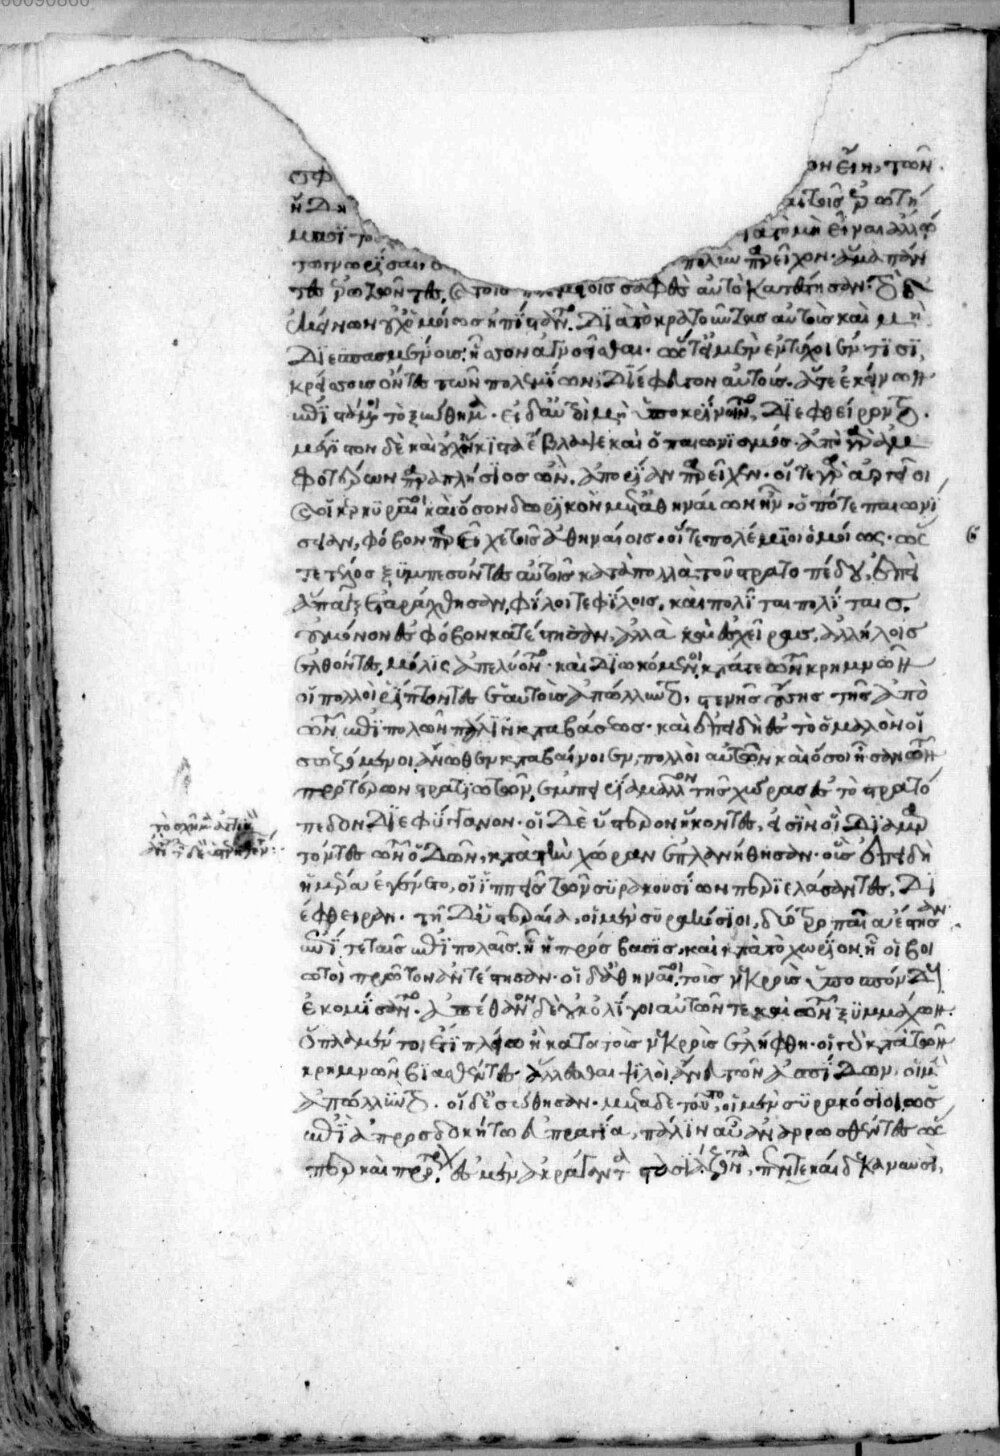 σφ ον εἴη, τῶν
ἤδη καὶ τοῖς ἐρωτή
μασι το ιὰ τὸ μὴ εἶναι ἄλλῳ
τω γνωρίσαι, σ πολὺν παρεῖχον. ἅμα πάν
τες ἐρωτῶντες, καὶ τοῖς πολεμίοις σαφὲς αὐτὸ κατέστησαν. τὸ δ'
ἐκείνων οὐχ ὁμοίως ἠπίσταντο. διὰ τὸ κρατοῦντας αὐτοὺς καὶ μὴ
διεσπασμένους, ἧσσον ἀγνοεῖσθαι. ὥστ' εἰ μὲν ἐντύχοιέν τισι,
κρείσσους ὄντες τῶν πολεμίων, διέφευγον αὐτούς. ἅτε ἐκείνων
ἐπιστάμενοι τὸ ξύνθημα. εἰ δ' αὐτοὶ μὴ ὑποκρίνοιντο, διεφθείροντο.
μέγιστον δὲ καὶ οὐχ ἥκιστα ἔβλαψε καὶ ὁ παιωνισμός. ἀπὸ γὰρ ἀμ
φοτέρων παραπλήσιος ὢν, ἀπορίαν παρεῖχεν. οἵ τε γὰρ ἀργεῖοι
καὶ οἱ κερκυραῖοι καὶ ὅσον δωρικὸν μετὰ ἀθηναίων ἦν, ὁπότε παιωνί
σειαν, φόβον παρεῖχε τοῖς ἀθηναίοις. οἵ τε πολέμιοι ὁμοίως. ὥς
τε τέλος ξυμπεσόντες αὐτοῖς κατὰ πολλὰ τοῦ στρατοπέδου, ἐπεὶ
ἅπαξ ἐταράχθησαν, φίλοι τε φίλοις, καὶ πολῖται πολίταις,
οὐ μόνον ἐς φόβον κατέστησαν, ἀλλὰ καὶ ἐς χεῖρας, ἀλλήλοις
ἐλθόντες, μόλις ἀπελύοντο. καὶ διωκόμενοι, κατά τε τῶν κρημνῶν
οἱ πολλοὶ ῥίπτοντες ἑαυτοὺς ἀπώλλυντο, στενῆς οὔσης τῆς ἀπὸ
τῶν ἐπιπολῶν πάλιν καταβάσεως. καὶ ἐπειδὴ ἐς τὸ ὁμαλὸν οἱ
σωζόμενοι ἄνωθεν καταβαίνοιεν, πολλοὶ αὐτῶν καὶ ὅσοι ἦσαν τῶν
προτέρων στρατιωτῶν, ἐμπειρίᾳ μᾶλλον τῆς χώρας ἐς τὸ στρατό
πεδον διεφύγγανον. οἱ δὲ ὕστερον ἥκοντες, εἰσὶν οἳ διαμαρ
τόντες τῶν ὁδῶν, κατὰ τὴν χώραν ἐπλανήθησαν. οὓς ἐπειδὴ
ἡμέρα ἐγένετο, οἱ ἱππεῖς τῶν συρακουσίων περιελάσαντες, δι
έφθειραν. τῇ δ' ὑστεραίᾳ, οἱ μὲν συρακόσιοι, δύο τροπαῖα ἔστησαν.
ἐπί τε ταῖς ἐπιπολαῖς. ᾗ ἡ πρόσβασις, καὶ κατὰ τὸ χωρίον ᾗ οἱ βοι
ωτοὶ πρῶτον ἀντέστησαν. οἱ δ' ἀθηναῖοι τοὺς νεκροὺς ὑποσπόνδους
ἐκομίσαντο. ἀπέθανον δὲ οὐκ ὀλίγοι αὐτῶν τε καὶ τῶν ξυμμάχων.
ὅπλα μέντοι ἔτι πλείω ἢ κατὰ τοὺς νεκροὺς ἐλήφθη. οἱ γὰρ κατὰ τῶν
κρημνῶν βιασθέντες ἅλλεσθαι ψιλοὶ ἄνευ τῶν ἀσπίδων, οἱ μὲν
ἀπώλλυντο. οἱ δ' ἐσώθησαν. μετὰ δὲ τοῦτο, οἱ μὲν συρακόσιοι, ὡς
ἐπὶ ἀπροσδοκήτῳ εὐπραγίᾳ, πάλιν αὖ ἀναρρωσθέντες ὥς
περ καὶ πρότερον, ἐς μὲν ἀκράγαντα στασιάζοντα, πεντεκαίδεκα ναυσὶ,